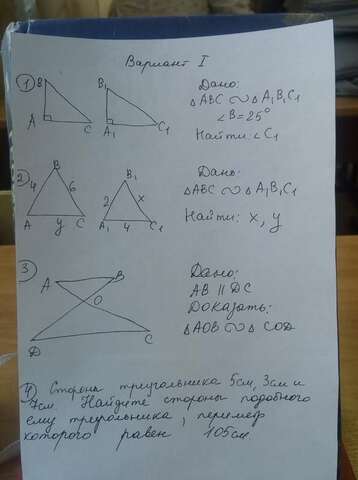 Вариант I
1
B
A
C
B₁
A₁
C₁
Дано:
△ABC ∾ △A₁B₁C₁
∠B=25°
Найти ∠C₁
2
B
4
6
A
y
C
B₁
2
x
A₁
4
C₁
Дано:
△ABC ∾ △A₁B₁C₁
Найти: x, y
3
A
B
O
D
C
Дано:
AB ∥ DC
Доказать:
△AOB ∾ △COD
4) Стороны треугольника 5см, 3см и
7см. Найдите стороны подобного
ему треугольника, перимет
которого равен 105см